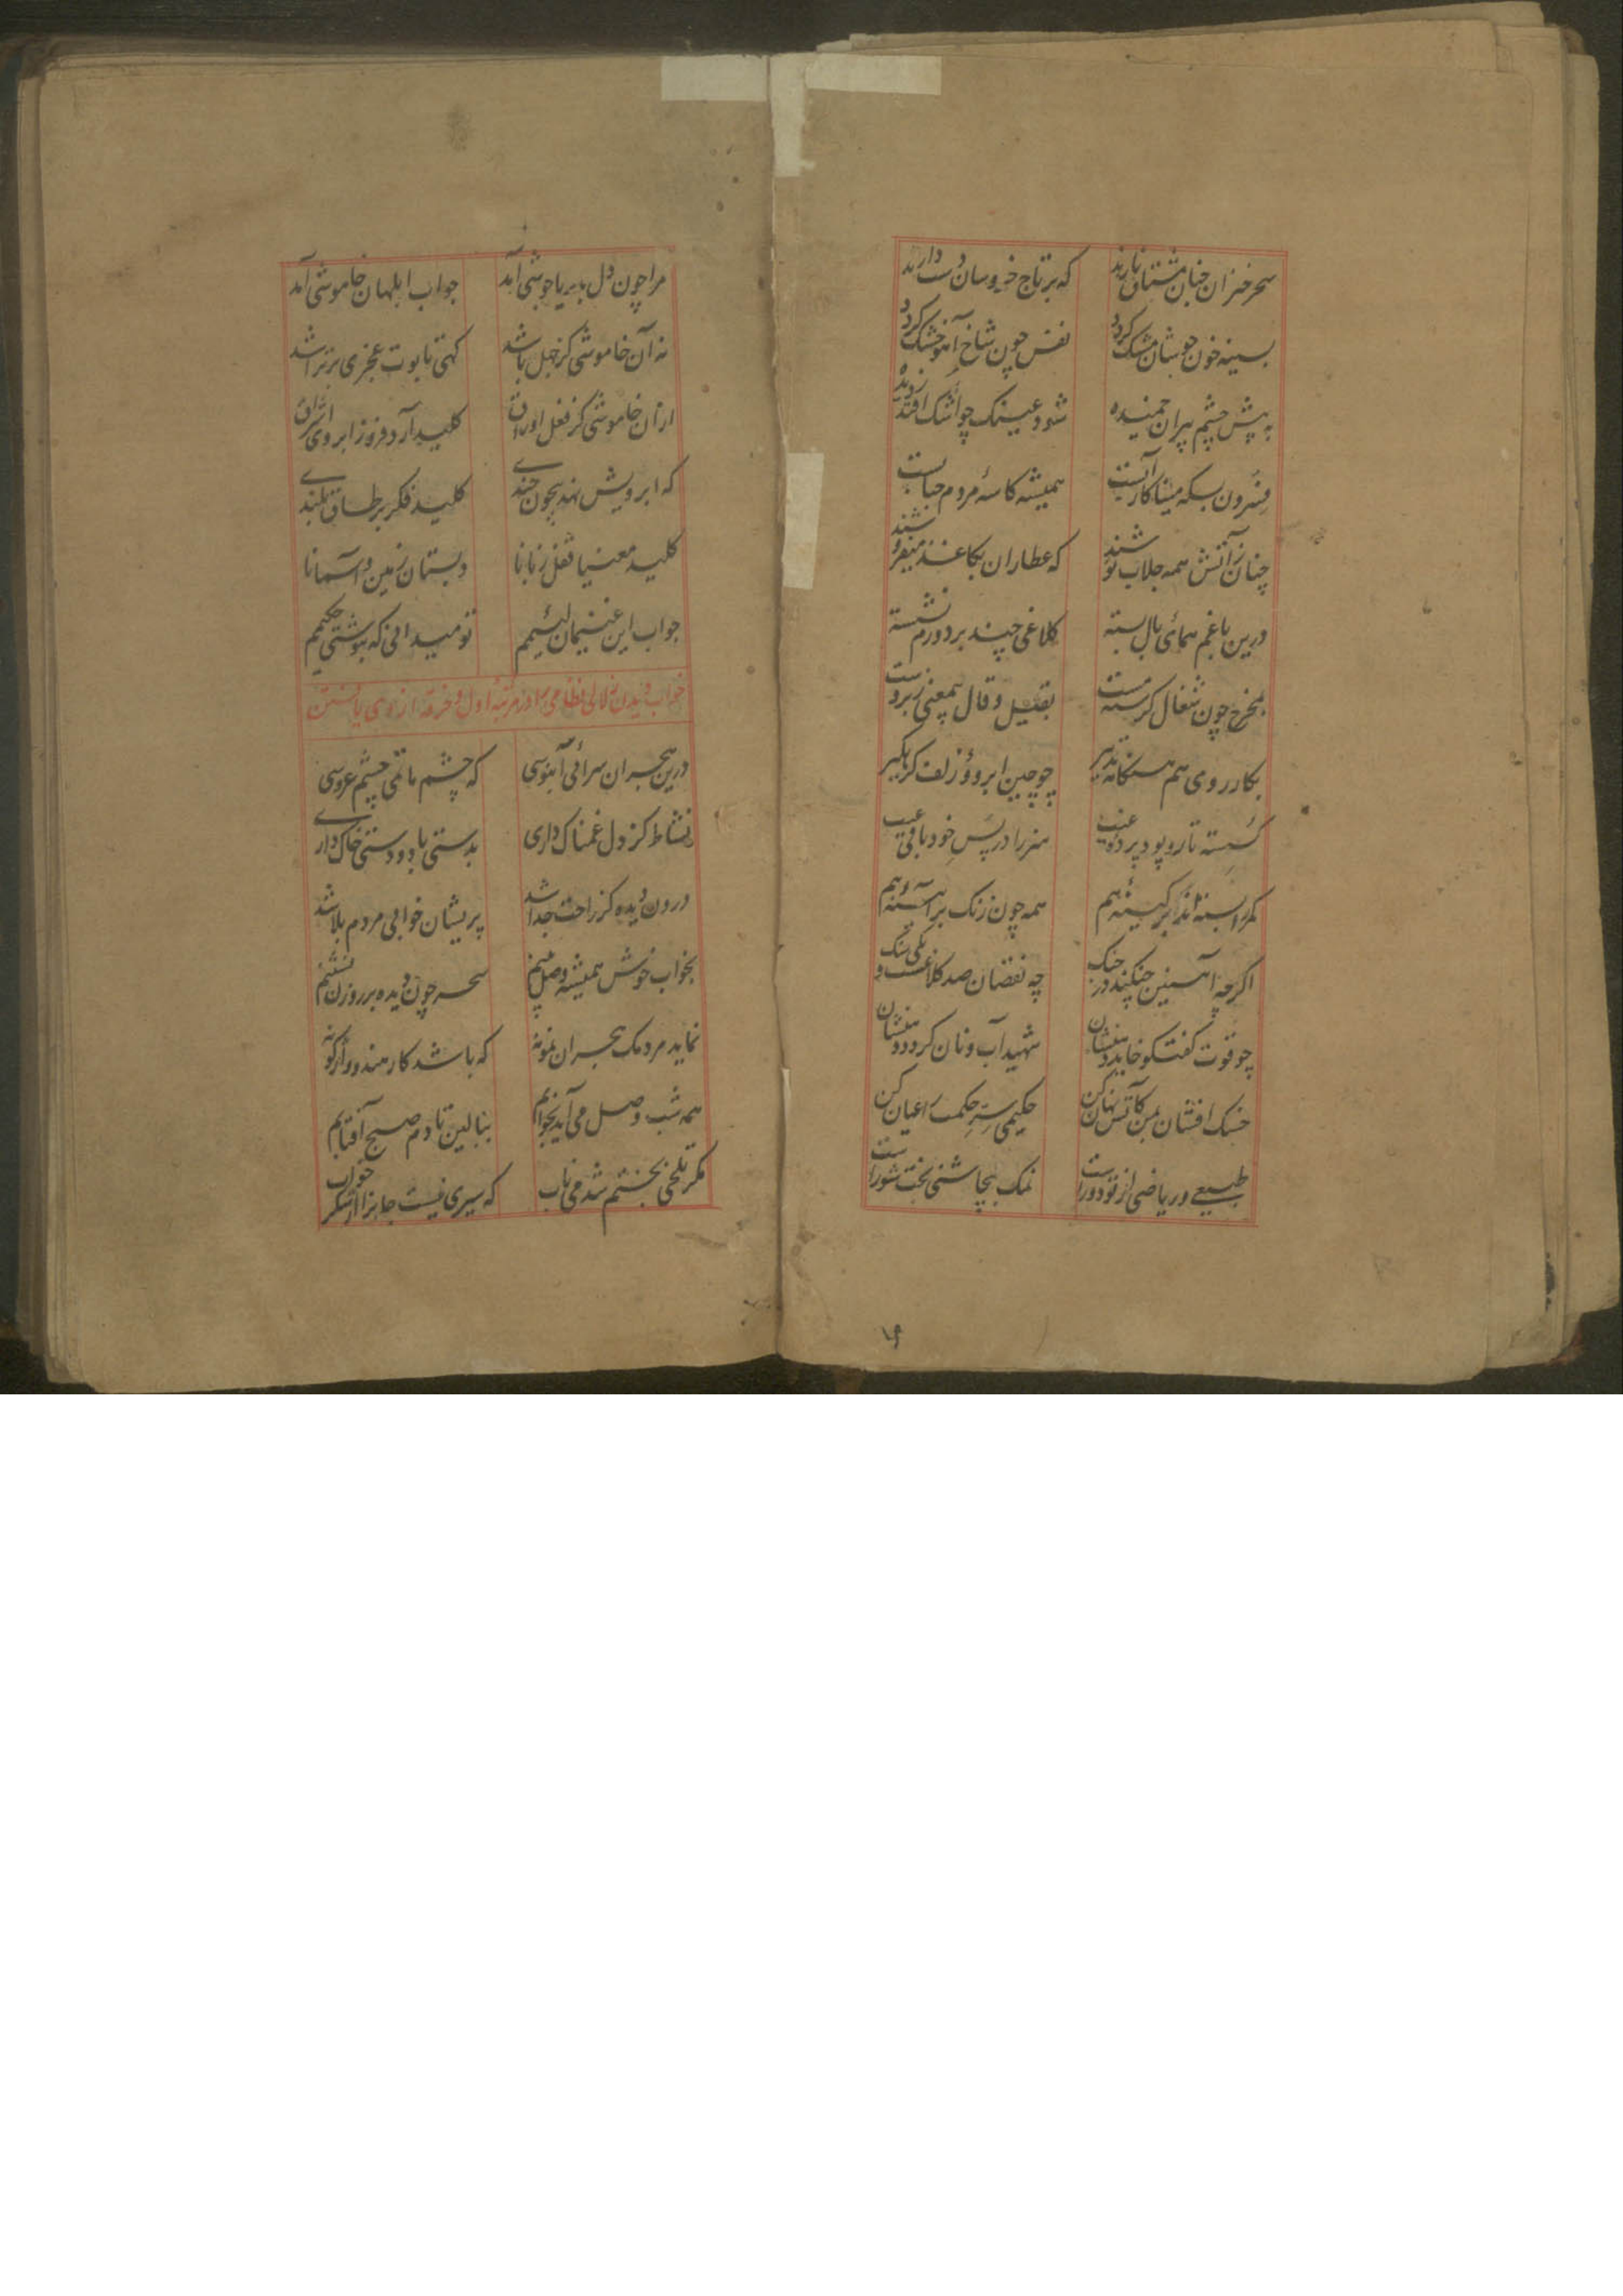 سحرخیزان چنان مشتاق نارند که بر تاج خروسان دست دارند
بسینه خون جوشان مشک گردد نفس چون شاخ آهو خشک گردد
به پیش چشم پیران خمیده شود عینک چو اشک افتد ز دیده
همیشه کاسهٔ مردم
چنان ز آتش همه جلاب نوشند که عطاران بکاغذ میفروشند
درین باغم همای بال بسته کلاغی چند بر دورم نشسته
بمخرج چون شغال بقیل و قال
بکار روی هم چو چین ابرو و زلف گره گیر
گسسته تار و پود پردهٔ هنر را در پس خود
کمر بر کینهٔ هم همه چون زنگ بر آئینهٔ هم
اگرچه آهنین چنگند در جنگ چه نقصان صد کلاغست و یکی سنگ
چو قوت گفتگو شهید آب و نان گردد
خسک افشان حکیمی حکمت را عیان کن
طبیعی و ریاضی از تو دور است نمک بیچاشنی بخت شور است
مرا چون دل بدریا جوشی آمد جواب ابلهان خاموشی آمد
نه آن خاموشی کز جهل باشد
ازان خاموشی کز قفل اوراق کلید آرد فرو ز ابروی اشراق
که ابرویش نهد بیچون چندی کلید فکر بر طاق بلندی
کلید معنیا قفل زبانا دبستان زمین و آسمانا
جواب این غنیمان لئیمم تو میدانی که بنوشتی حکیمم
خواب دیدن زلالی نظامی را در مرتبهٔ اول و خرقه از وی یافتن
درین هجران سرای آبنوسی که چشم ماتمی چشم عروسی
نشاط کز دل غمناک داری بدستی باد و دستی خاک داری
درون دیده کز راحت جدا شد پریشان خوابی مردم بلا شد
بخواب خوش همیشه وصل بینم سحر چون دیده بر روزن نشینم
نماید مردمک هجران نمونه که باشد کار هندو واژگونه
همه شب وصل می آید بخوابم ببالین تا دم صبح آفتابم
مگر تلخی بختم شد می ناب که سیری نیست جانرا از شکر خواب
۱۹